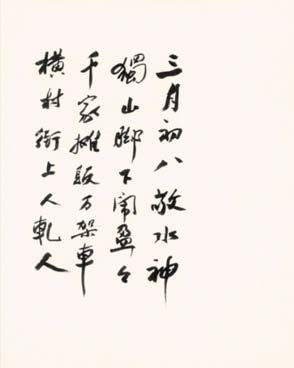 三月初八敬水神
獨山腳下鬧盈々
千家攤販万架車
橫村街上人軋人